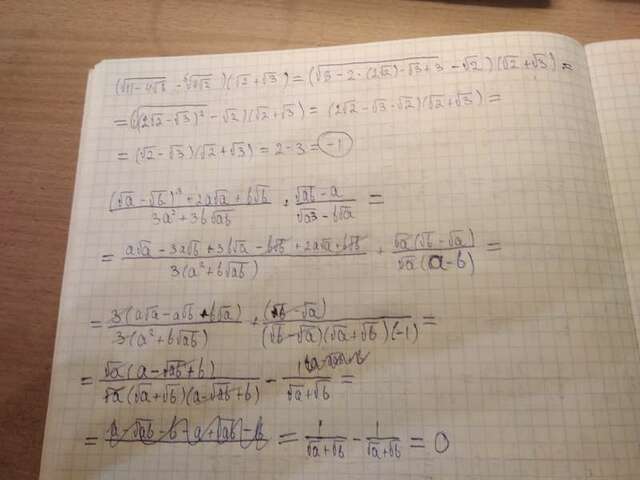 (√11-4√6 - ∜√2)(√2+√3) = (√3-2·(2√2)·√3+3 - √2)(√2+√3) =
= (√(2√2-√3)² - √2)(√2+√3) = (2√2-√3-√2)(√2+√3) =
= (√2-√3)(√2+√3) = 2-3 = -1
((√a-√b)³+2a√a+b√b)/(3a²+3b√ab) + (√ab-a)/(√a3-b√a) =
= (a√a-3a√b+3b√a-b√b+2a√a+b√b)/(3(a²+b√ab)) + (√a(√b-√a))/(√a(a-b)) =
= (3(a√a-a√b+b√a))/(3(a²+b√ab)) + (√b-√a)/((√b-√a)(√a+√b)(-1)) =
= (√a(a-√ab+b))/(√a(√a+√b)(a-√ab+b)) - 1/(√a+√b) =
= = 1/(√a+√b) - 1/(√a+√b) = 0